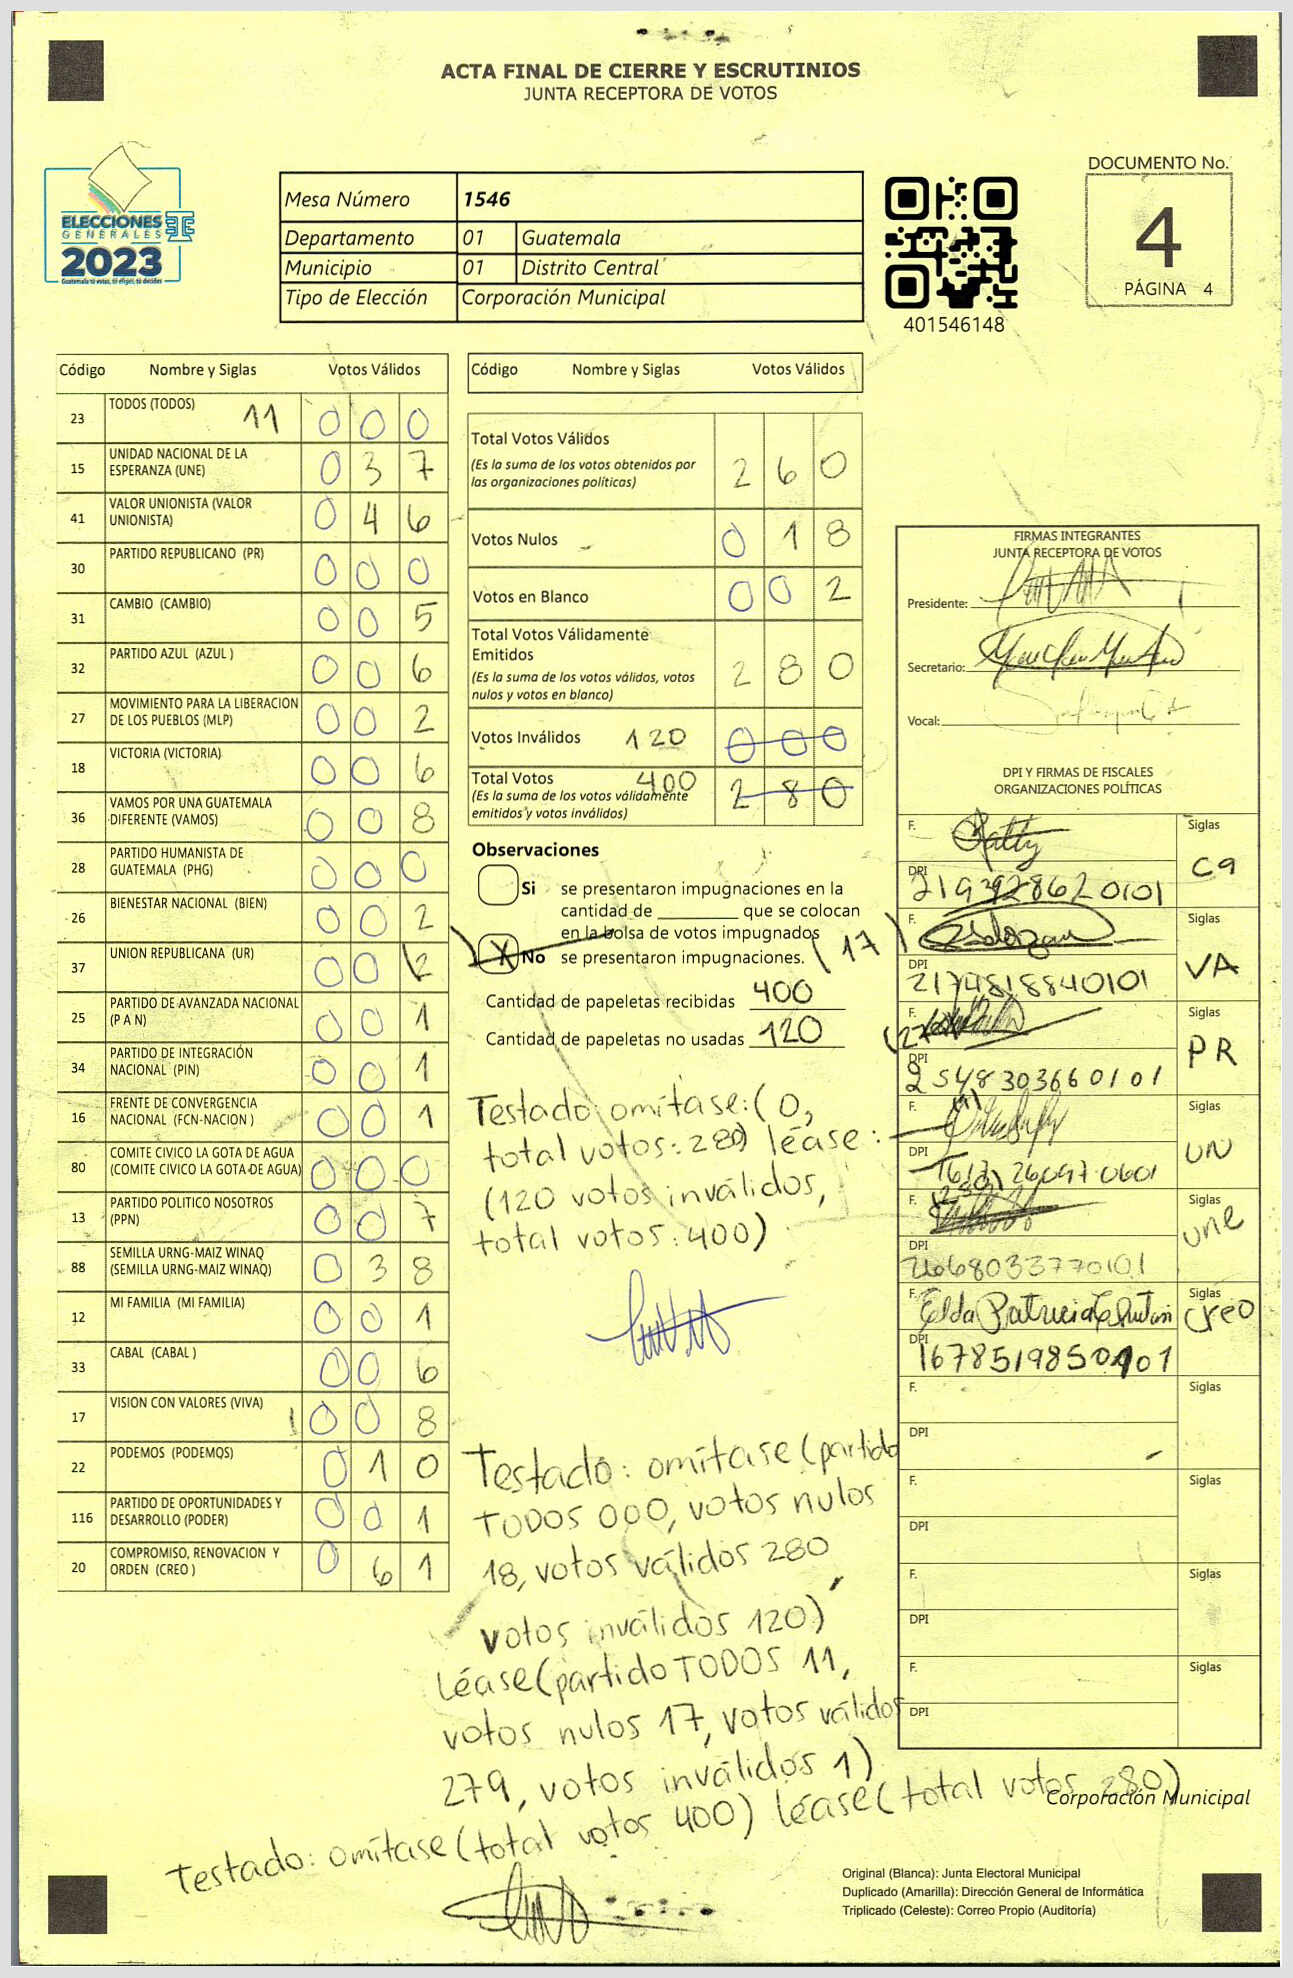 ACTA FINAL DE CIERRE Y ESCRUTINIOS
JUNTA RECEPTORA DE VOTOS
ELECCIONES
GENERALES
2023
Guatemala tú votas, tú eliges, tú decides
Mesa Número 1546
Departamento 01 Guatemala
Municipio 01 Distrito Central
Tipo de Elección Corporación Municipal
401546148
DOCUMENTO No.
4
PÁGINA 4
Código Nombre y Siglas Votos Válidos
23 TODOS (TODOS) 11 0 0 0
15 UNIDAD NACIONAL DE LA ESPERANZA (UNE) 0 3 7
41 VALOR UNIONISTA (VALOR UNIONISTA) 0 4 6
30 PARTIDO REPUBLICANO (PR) 0 0 0
31 CAMBIO (CAMBIO) 0 0 5
32 PARTIDO AZUL (AZUL ) 0 0 6
27 MOVIMIENTO PARA LA LIBERACION DE LOS PUEBLOS (MLP) 0 0 2
18 VICTORIA (VICTORIA) 0 0 6
36 VAMOS POR UNA GUATEMALA DIFERENTE (VAMOS) 0 0 8
28 PARTIDO HUMANISTA DE GUATEMALA (PHG) 0 0 0
26 BIENESTAR NACIONAL (BIEN) 0 0 2
37 UNION REPUBLICANA (UR) 0 0 2
25 PARTIDO DE AVANZADA NACIONAL (P A N) 0 0 1
34 PARTIDO DE INTEGRACIÓN NACIONAL (PIN) 0 0 1
16 FRENTE DE CONVERGENCIA NACIONAL (FCN-NACION ) 0 0 1
80 COMITE CIVICO LA GOTA DE AGUA (COMITE CIVICO LA GOTA DE AGUA) 0 0 0
13 PARTIDO POLITICO NOSOTROS (PPN) 0 0 7
88 SEMILLA URNG-MAIZ WINAQ (SEMILLA URNG-MAIZ WINAQ) 0 3 8
12 MI FAMILIA (MI FAMILIA) 0 0 1
33 CABAL (CABAL ) 0 0 6
17 VISION CON VALORES (VIVA) 0 0 8
22 PODEMOS (PODEMOS) 0 1 0
116 PARTIDO DE OPORTUNIDADES Y DESARROLLO (PODER) 0 0 1
20 COMPROMISO, RENOVACION Y ORDEN (CREO ) 0 6 1
Código Nombre y Siglas Votos Válidos
Total Votos Válidos 2 6 0
(Es la suma de los votos obtenidos por
las organizaciones políticas)
Votos Nulos 0 1 8
Votos en Blanco 0 0 2
Total Votos Válidamente
Emitidos 2 8 0
(Es la suma de los votos válidos, votos
nulos y votos en blanco)
Votos Inválidos 120 0 0 0
Total Votos 400 2 8 0
(Es la suma de los votos válidamente
emitidos y votos inválidos)
Observaciones
Si se presentaron impugnaciones en la
cantidad de ________ que se colocan
en la bolsa de votos impugnados
X No se presentaron impugnaciones. (17)
Cantidad de papeletas recibidas 400
Cantidad de papeletas no usadas 120
Testado: omítase: (0,
total votos: 280) léase:
(120 votos inválidos,
total votos: 400)
Testado: omítase (partido
TODOS 000, votos nulos
18, votos válidos 280
votos inválidos 120)
Léase (partido TODOS 11,
votos nulos 17, votos válidos
279, votos inválidos 1)
Testado: omítase (total votos 400) léase (total votos 280)
FIRMAS INTEGRANTES
JUNTA RECEPTORA DE VOTOS
Presidente:
Secretario:
Vocal:
DPI Y FIRMAS DE FISCALES
ORGANIZACIONES POLÍTICAS
F. Patty Siglas
DPI
F. Siglas VA
DPI 2174818840101
F. Siglas PR
DPI 2548303660101
F. Siglas UN
DPI
F. Siglas une
DPI 2668033770101
F. Elda Patricia Siglas creo
DPI
F. Siglas
DPI
F. Siglas
DPI
F. Siglas
DPI
F. Siglas
DPI
Corporación Municipal
Original (Blanca): Junta Electoral Municipal
Duplicado (Amarilla): Dirección General de Informática
Triplicado (Celeste): Correo Propio (Auditoría)